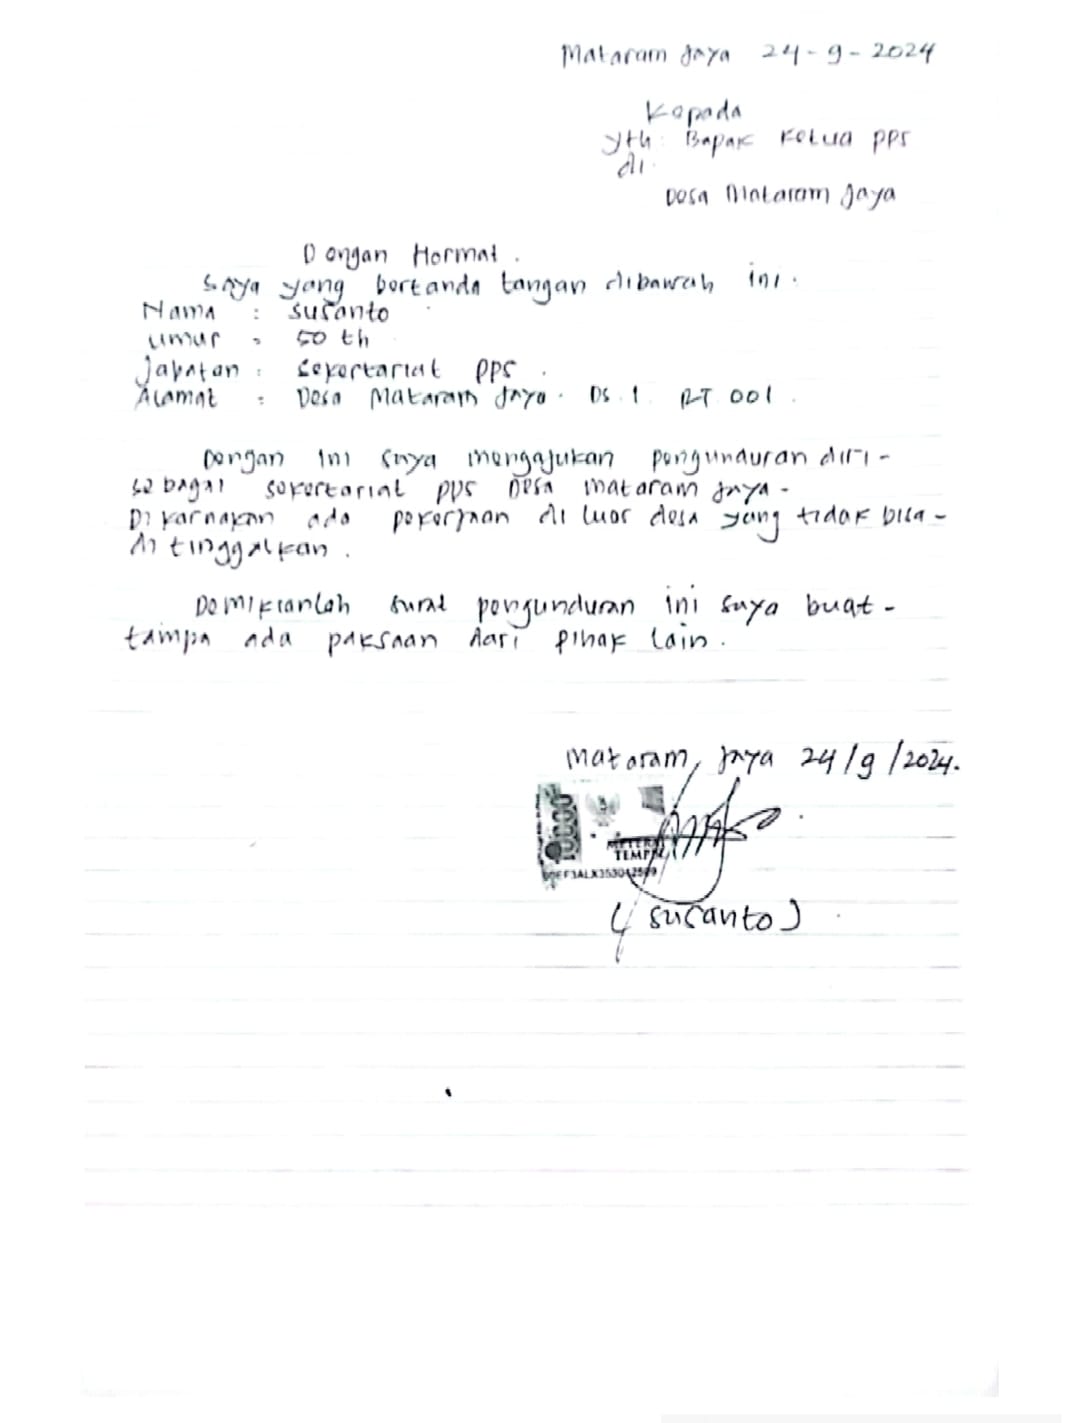 Mataram Jaya 24-9-2024
Kepada
Yth: Bapak Ketua PPS
di.
Desa Mataram Jaya
Dengan Hormat.
Saya yang bertanda tangan dibawah ini.
Nama : Susanto
Umur : 50 th
Jabatan : Sekertariat PPS.
Alamat : Desa Mataram Jaya. Ds. 1 RT 001.
Dengan ini saya mengajukan pengunduran diri-
sebagai sekertariat PPS Desa Mataram Jaya-
Dikarnakan ada pekerjaan di luar desa yang tidak bisa-
di tinggalkan.
Demikianlah surat pengunduran ini saya buat-
tampa ada paksaan dari pihak lain.
Mataram Jaya 24/9/2024.
10000
METERAI
TEMPEL
(Susanto)